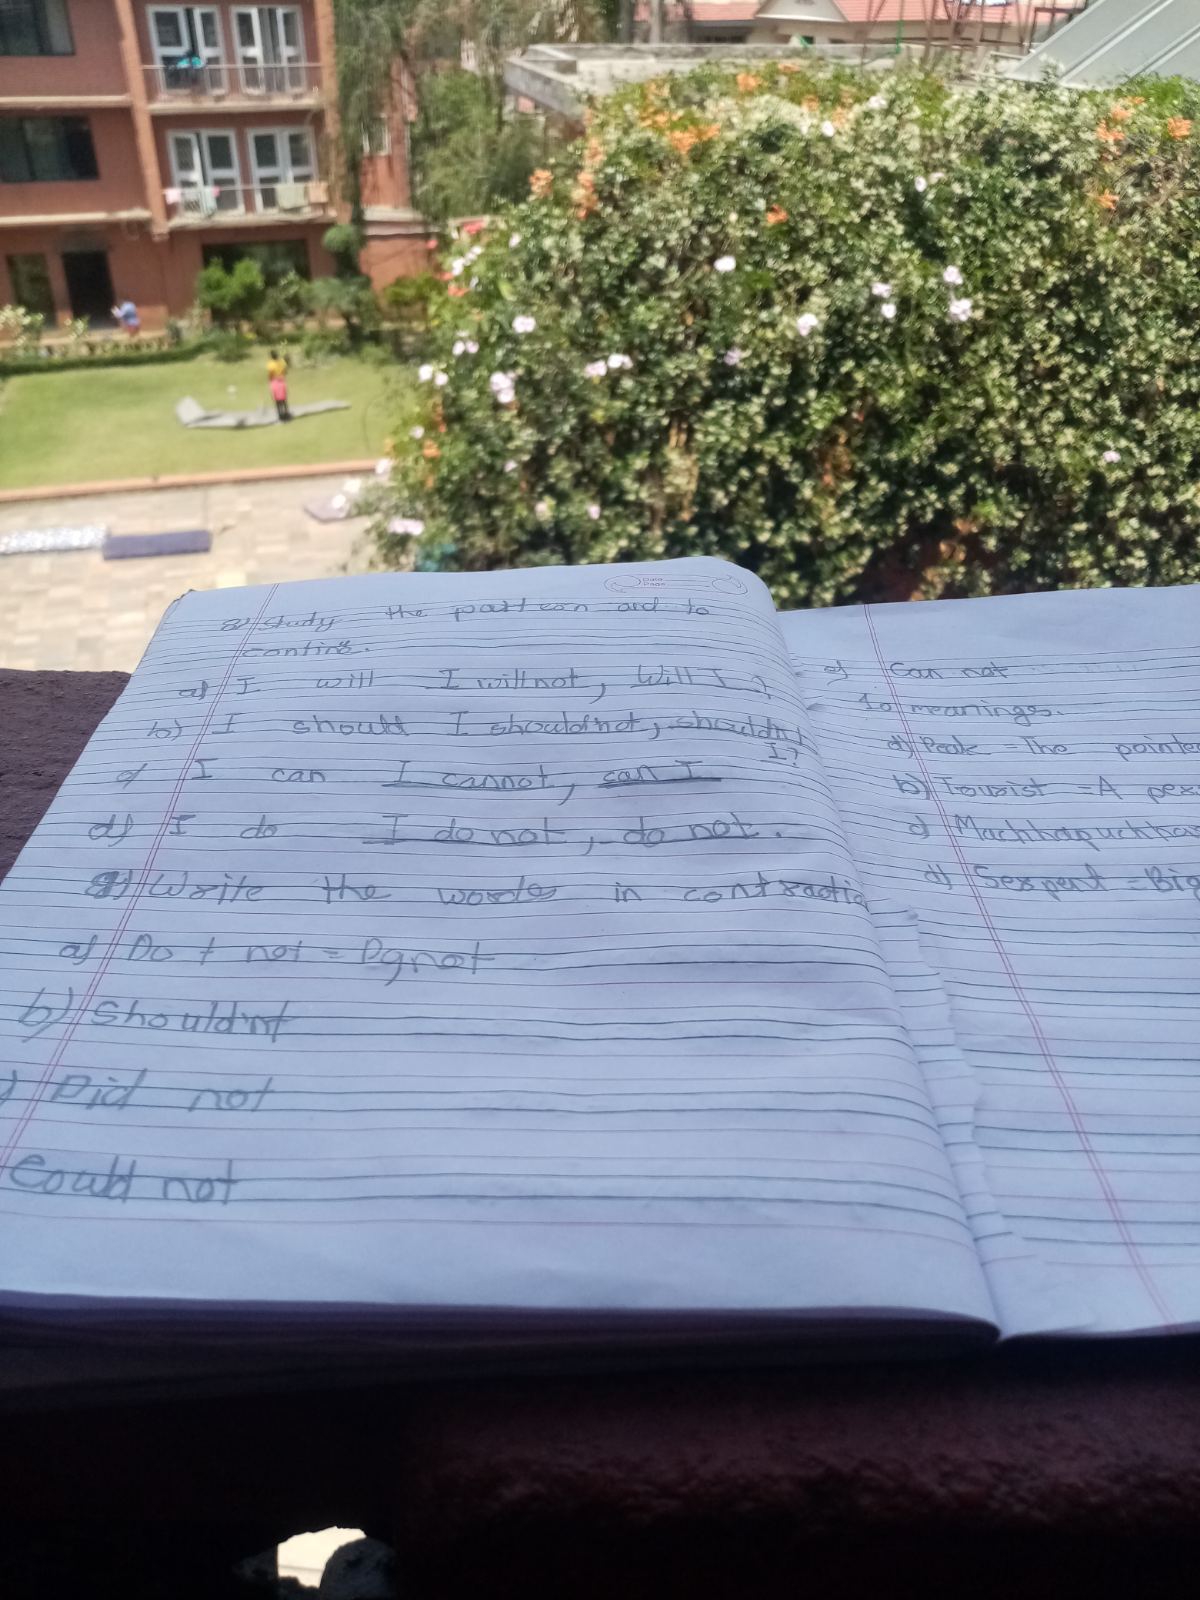 Date
Page
8) Study the pattern and to
continu.
a) I will I will not, Will I?
b) I should I shouldnot, shouldn
I?
c) I can I cannot, can I
d) I do I do not, do not.
9) Write the words in contractio
a) Do + not = Donot
b) Shouldnt
) Did not
Could not
e) Can not
10 meanings.
a) Peak = The pointe
b) Tourist = A pers
c) Machhapuchha
d) Serpent = Big